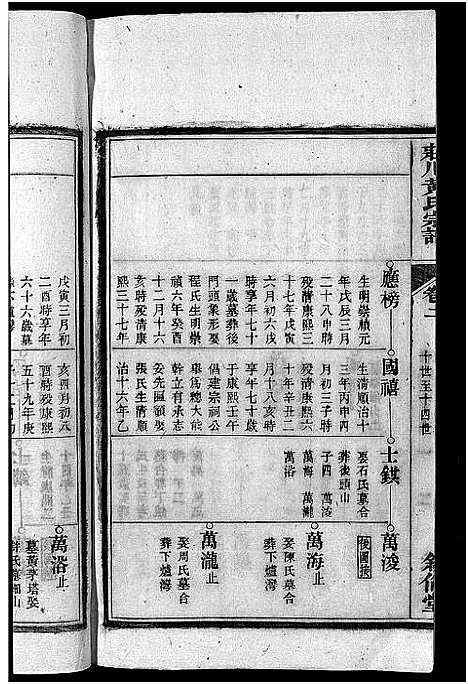 黃氏宗譜
卷二
十世至十四世
應榜
生明崇禎元
年戊辰三月
二十八申時
歿清康熙三
十七年戊寅
六月初六戌
時享年七十
一歲墓葬後
門頭象形娶
程氏生明崇
禎六年癸酉
十二月十六
亥時歿清康
熙三十七年
戊寅三月初
二酉時享年
六十六歲墓
國禧
生清順治十
三年丙申四
月初三子時
歿清康熙六
十年辛丑二
月十八亥時
享年七十歲
于康熙壬午
倡建宗祠公
舉爲總大能
幹立有承志
妾先區額娶
張氏生清順
治十六年乙
亥四月初九
時歿康熙
五十九年庚
士錤
娶石氏墓合
葬後頭山
子四 萬淩
萬海 萬瀧
萬浴
萬淩
後圖接
萬海止
娶陳氏墓合
葬下爐灣
萬瀧止
娶周氏墓合
葬下爐灣
萬浴止
墓黃茅塔娶